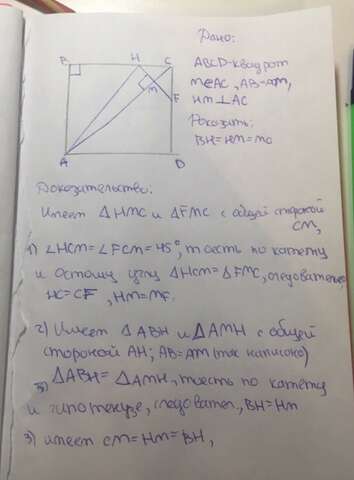 Дано:
B H C
ABCD-квадрат
M∈AC, AB=AM,
HM⊥AC
M
F
Доказать:
BH=HM=MC
A D
Доказательство:
Имеем △HMC и △FMC с общей стороной
CM,
1) ∠HCM=∠FCM=45°, то есть по катету
и острому углу △HCM=△FMC, следовательно
HC=CF, HM=MF.
2) Имеем △ABH и △AMH с общей
стороной AH; AB=AM (так написано)
3) △ABH=△AMH, то есть по катету
и гипотенузе, следоват., BH=HM
3) имеем CM=HM=BH,